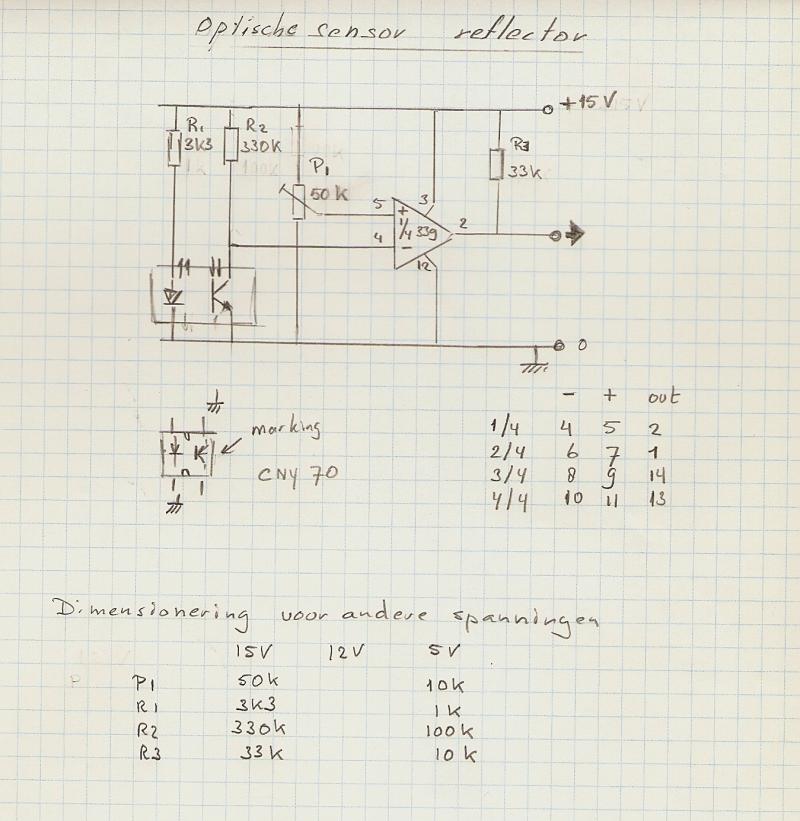 Optische sensor reflector
+15V
R1 R2 R3
3K3 330K 33K
P1
50K
5 3
+
1/4 339 2
4 -
12
0
- + out
marking 1/4 4 5 2
2/4 6 7 1
CNY 70 3/4 8 9 14
4/4 10 11 13
Dimensionering voor andere spanningen
15V 12V 5V
P1 50K 10K
R1 3K3 1K
R2 330K 100K
R3 33K 10K